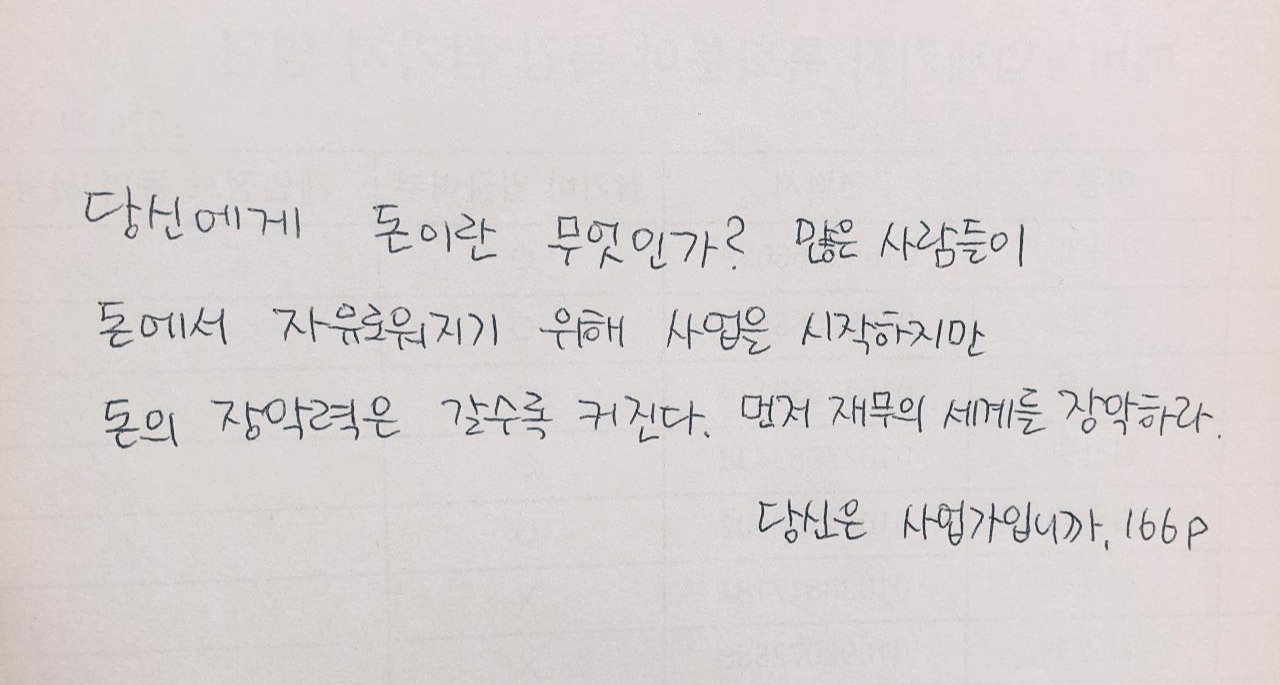 당신에게 돈이란 무엇인가? 많은 사람들이
돈에서 자유로워지기 위해 사업을 시작하지만
돈의 장악력은 갈수록 커진다. 먼저 재무의 세계를 장악하라.
당신은 사업가입니까, 166p